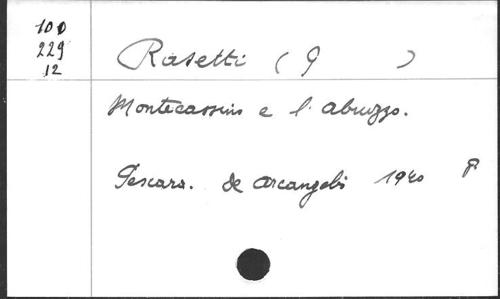 100
229
12
Rasetti ( G )
Montecassino e l'abruzzo.
Pescara. De Arcangelis 1940